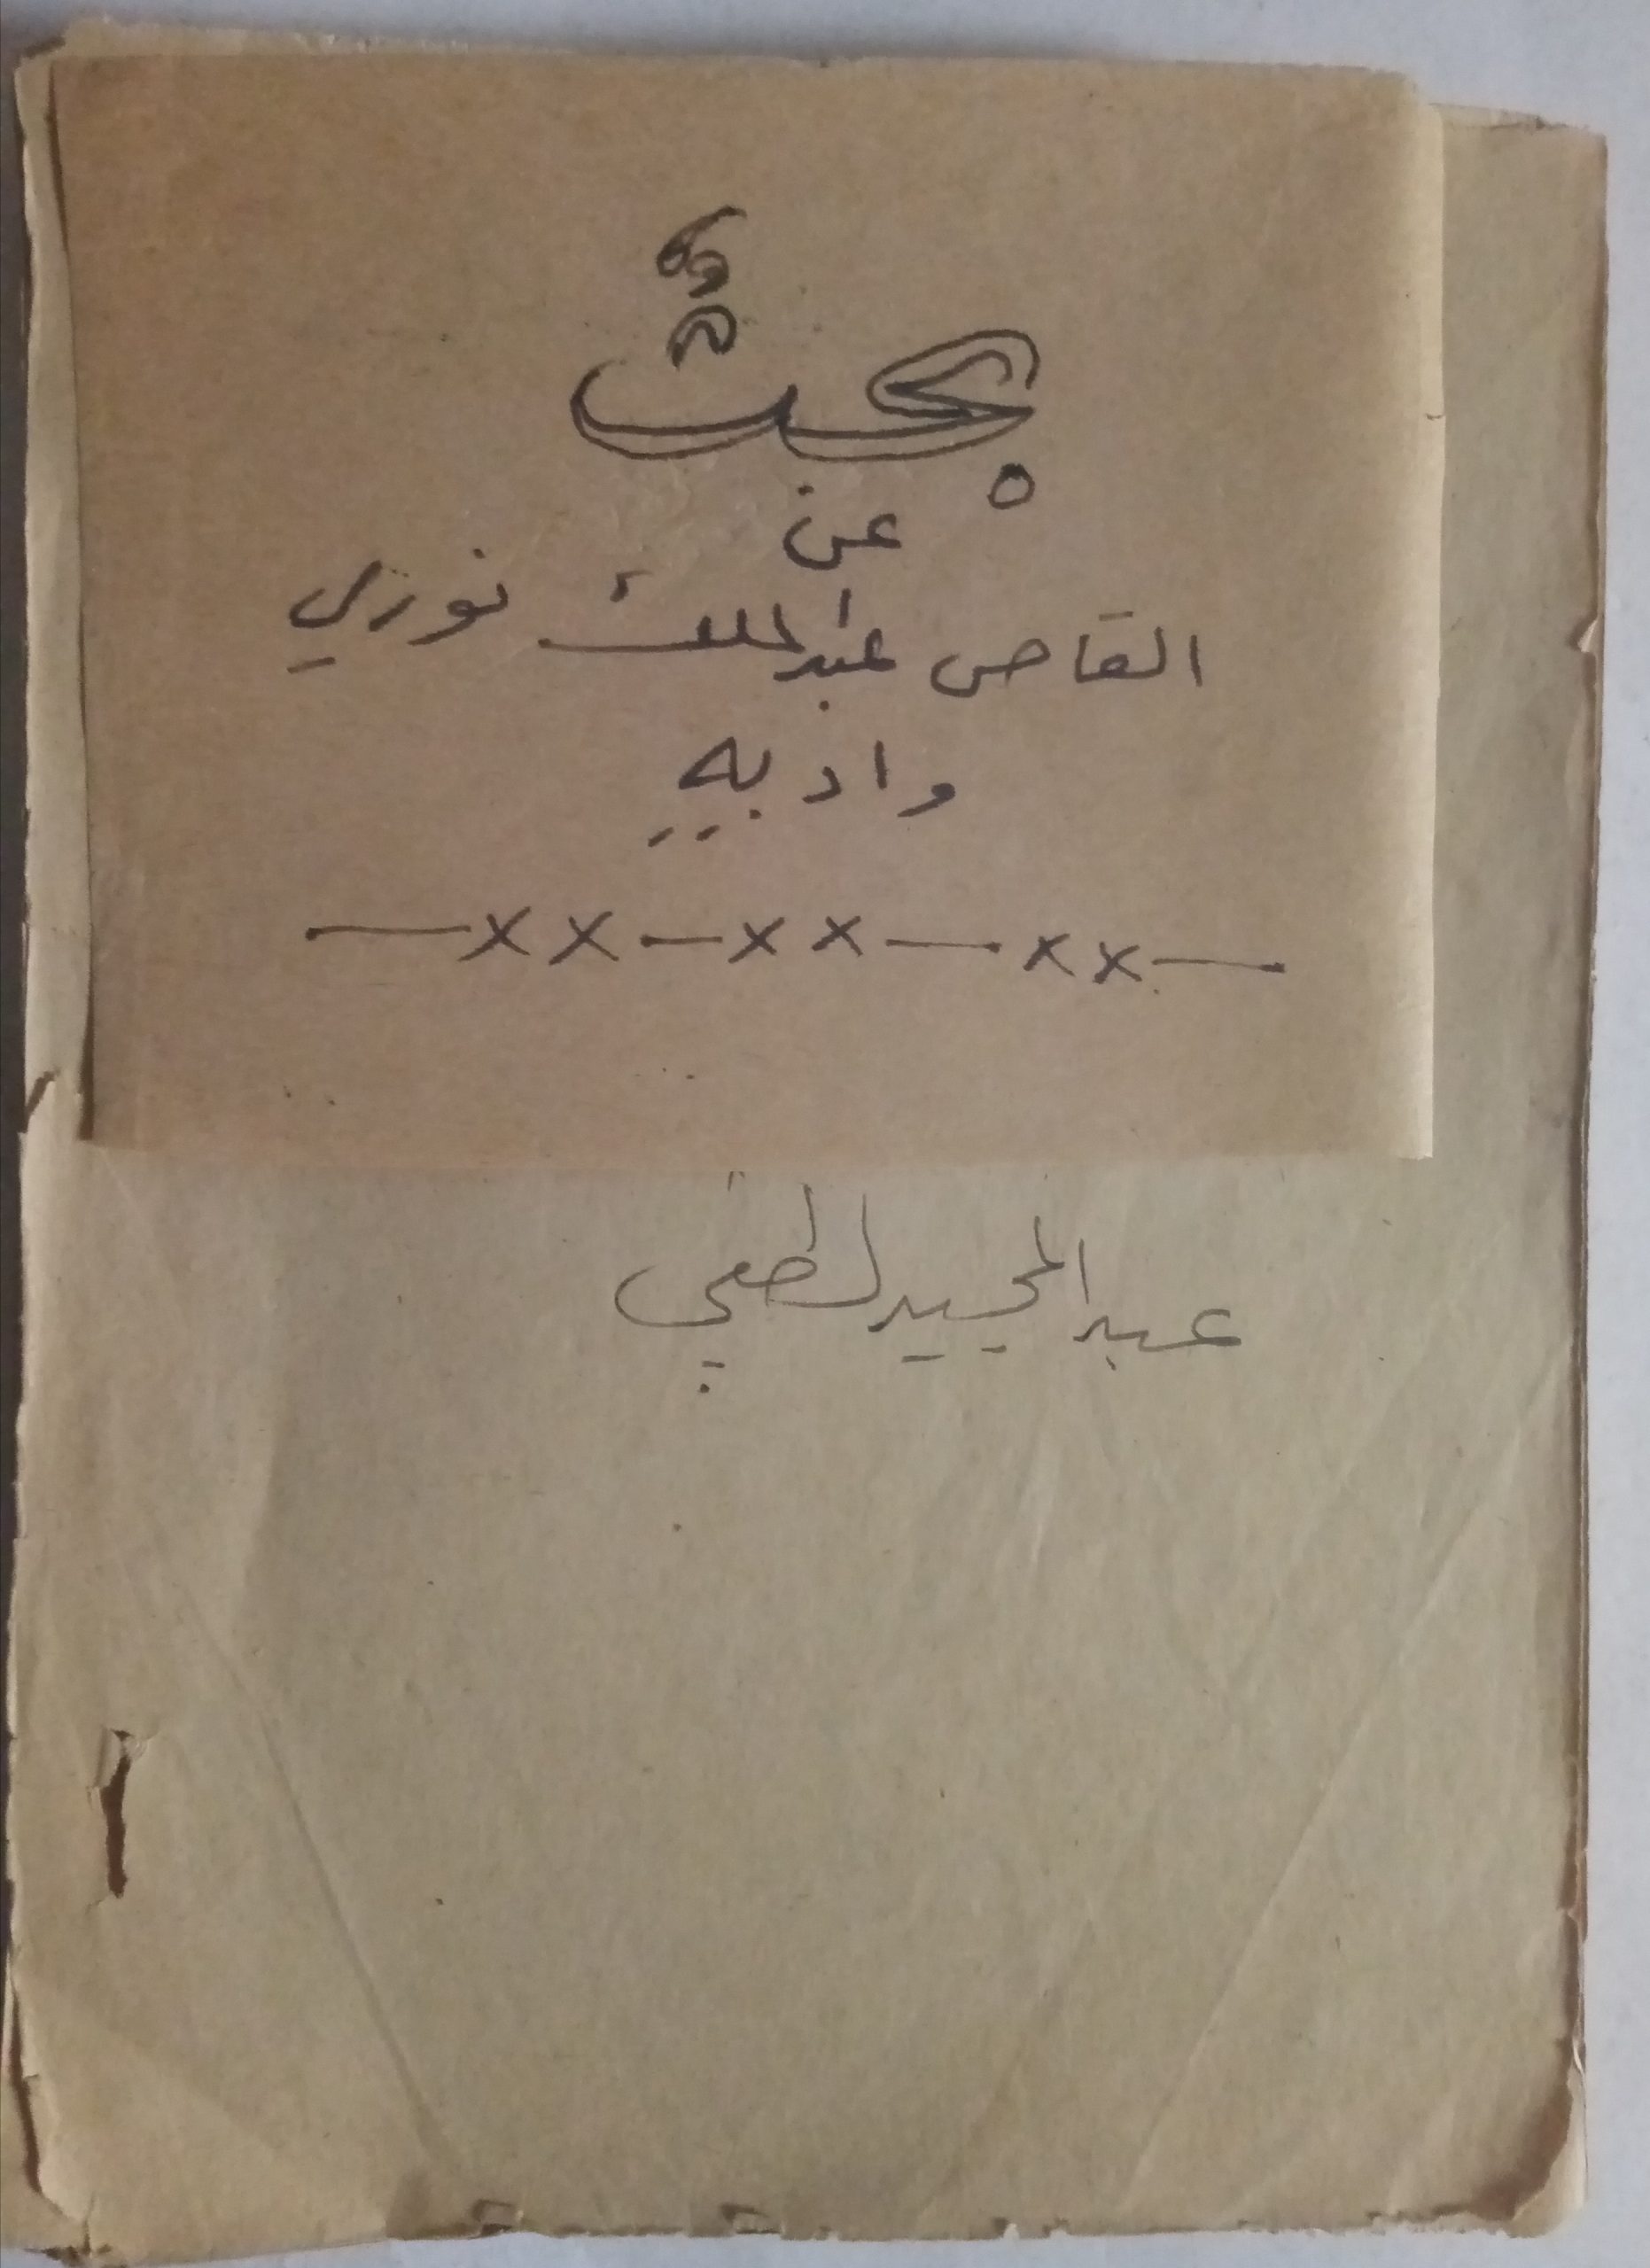 بحث
عن
القاص عبد الملك نوري
وادبه
—xx—xx—xx—
عبد المجيد لطفي